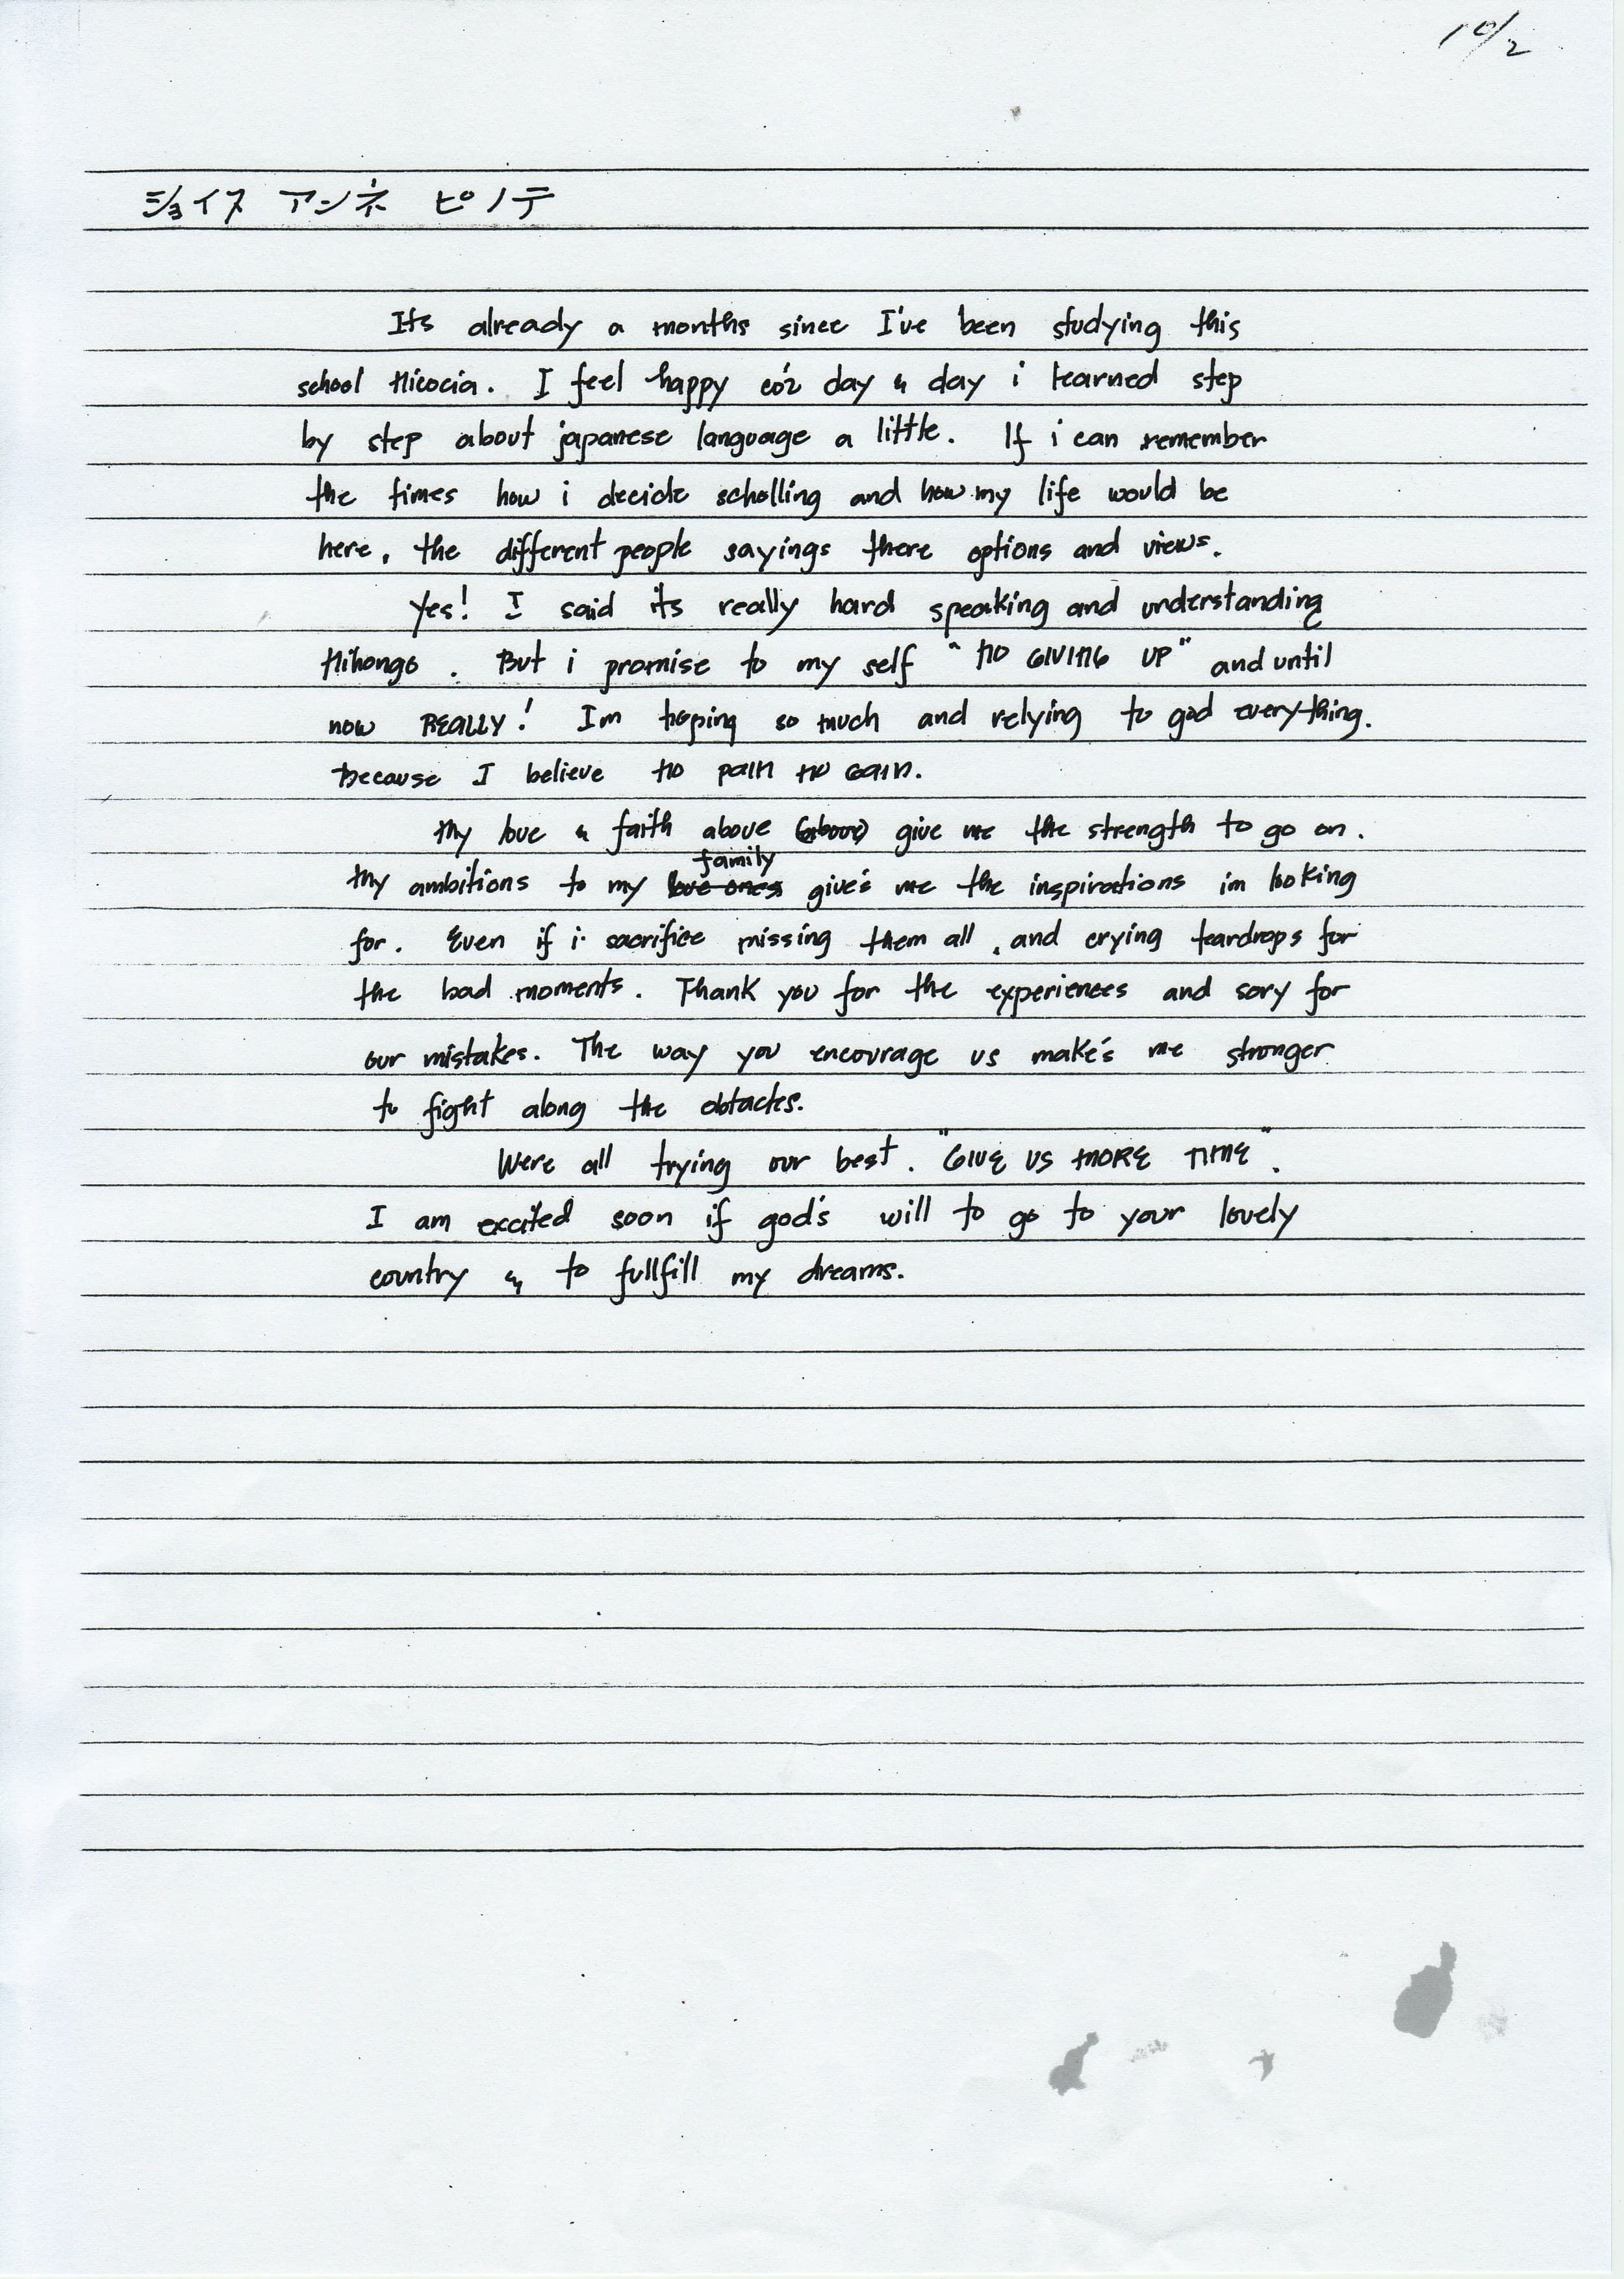 10/2
ジョイス アンネ ピノテ
Its already a months since I've been studying this
school Nicocia. I feel happy co'z day & day i learned step
by step about japanese language a little. If i can remember
the times how i decide scholling and how my life would be
here, the different people sayings there options and views.
Yes! I said its really hard speaking and understanding
Nihongo. But i promise to my self "NO GIVING UP" and until
now REALLY! Im hoping so much and relying to god everything.
Because I believe no pain no gain.
My love & faith above (above) give me the strength to go on.
My ambitions to my love ones family give's me the inspirations im looking
for. Even if i sacrifice missing them all, and crying teardrops for
the bad moments. Thank you for the experiences and sory for
our mistakes. The way you encourage us make's me stronger
to fight along the obtacles.
Were all trying our best. "GIVE US MORE TIME".
I am excited soon if god's will to go to your lovely
country & to fullfill my dreams.